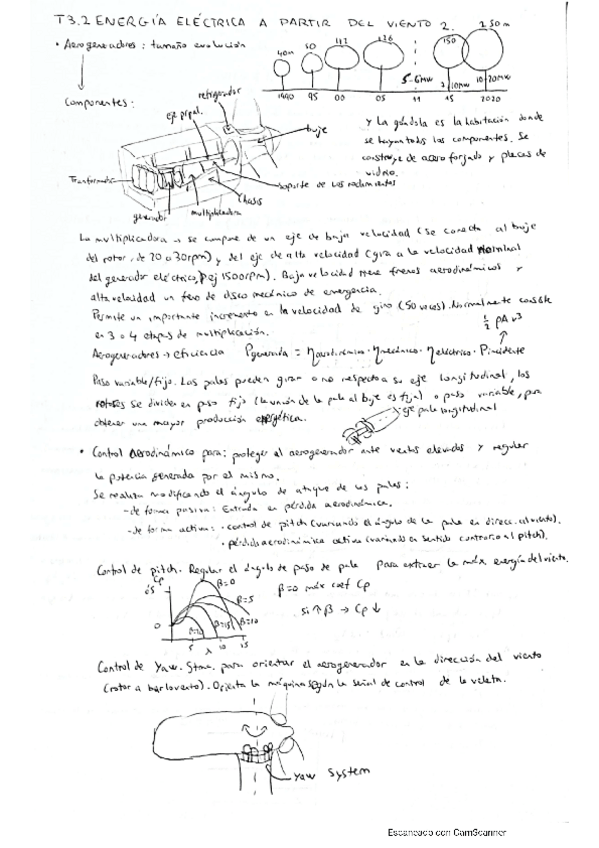 T3.2 ENERGÍA ELÉCTRICA A PARTIR DEL VIENTO 2.
250m
• Aerogeneradores: tamaño evolución
40m 50 112 126 150
5-6MW 10MW 10-20MW
1990 95 00 05 11 15 2020
Componentes:
refrigerador
eje ppal.
buje
Transformador
soporte de los rodamientos
chasis
generador multiplicadora
y La góndola es la habitación donde
se hayan todos los componentes. Se
construye de acero forjado y placas de
vidrio.
La multiplicadora → se compone de un eje de baja velocidad (se conecta al buje
del rotor, de 20 a 30rpm) y del eje de alta velocidad (gira a la velocidad nominal
del generador eléctrico, p ej 1500rpm). Baja velocidad tiene frenos aerodinámicos y
alta velocidad un freno de disco mecánico de emergencia.
Permite un importante incremento en la velocidad de giro (50 veces). Normalmente consiste
en 3 o 4 etapas de multiplicación.
½ ρAv³
Aerogeneradores → eficiencia Pgenerada = ηaerodinámico · ηmecánico · ηeléctrico · Pincidente
Paso variable/fijo. Las palas pueden girar o no respecto a su eje longitudinal, los
rotores se dividen en paso fijo (la unión de la pala al buje es fija) o paso variable, para
obtener una mayor producción energética.
eje pala longitudinal
• Control Aerodinámico para: proteger al aerogenerador ante vientos elevados y regular
la potencia generada por el mismo.
Se realiza modificando el ángulo de ataque de las palas:
-de forma pasiva: Entrada en pérdida aerodinámica.
-de forma activa: · control de pitch (variando el ángulo de la pala en direcc. al viento).
· pérdida aerodinámica activa (variando en sentido contrario al pitch).
Control de pitch. Regular el ángulo de paso de pala para extraer la máx. energía del viento.
Cp
0'5
β=0
β=5
β=15 β=10
0
5 λ 10 15
β=0 máx coef Cp
si ↑β → Cp ↓
Control de Yaw. Stma. para orientar el aerogenerador en la dirección del viento
(rotor a barlovento). Orienta la máquina según la señal de control de la veleta.
yaw system
Escaneado con CamScanner